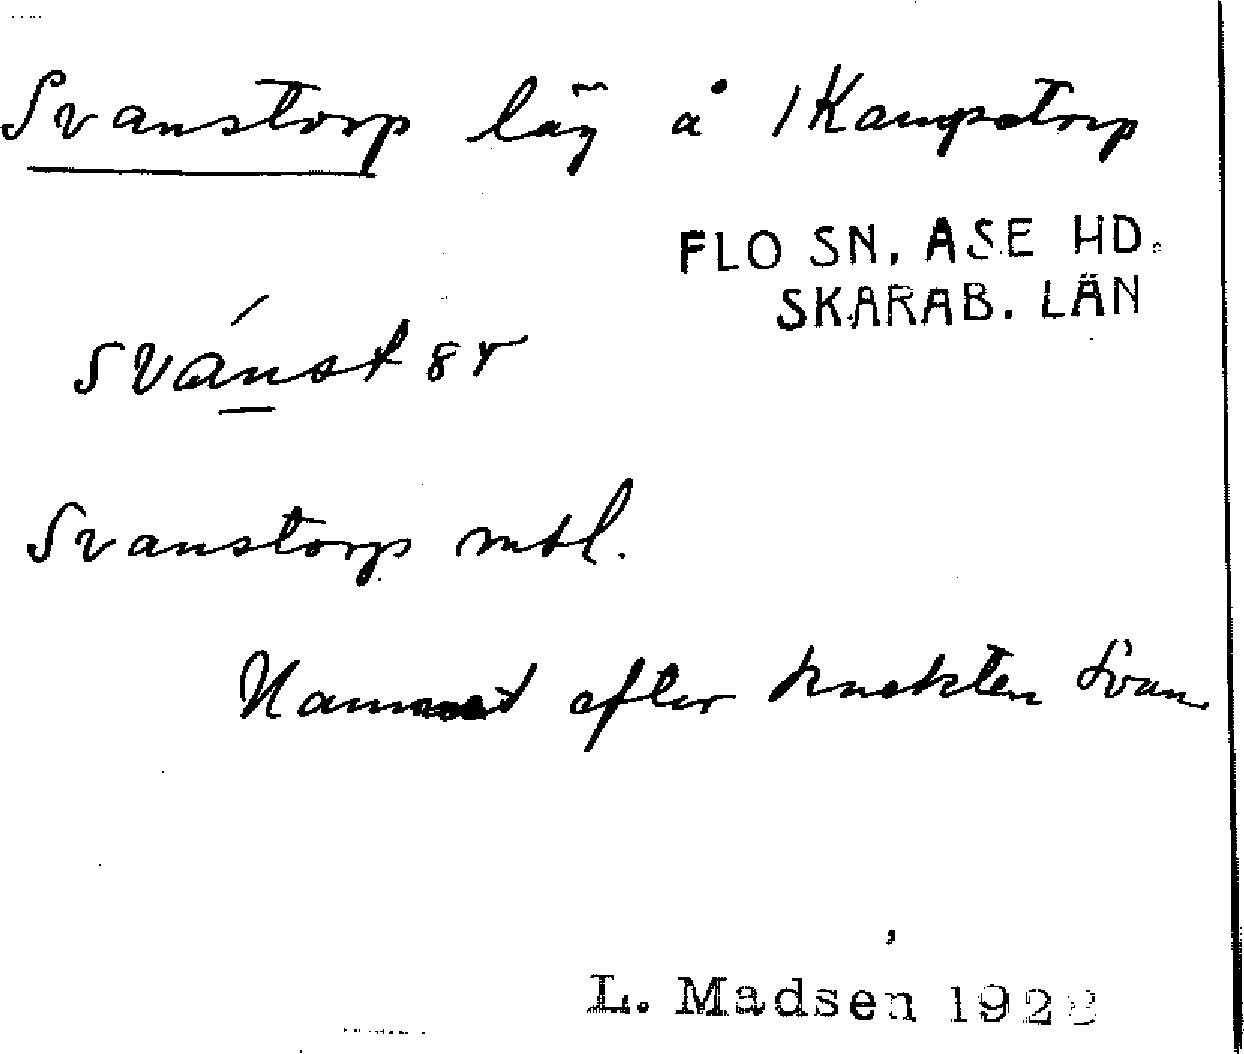 Svanstorp läg å 1 Kampetorp
FLO SN. ASE HD.
SKARAB. LÄN
svánst
Svanstorp mtl.
Namnet efter knekten Svan
L. Madsen 1922